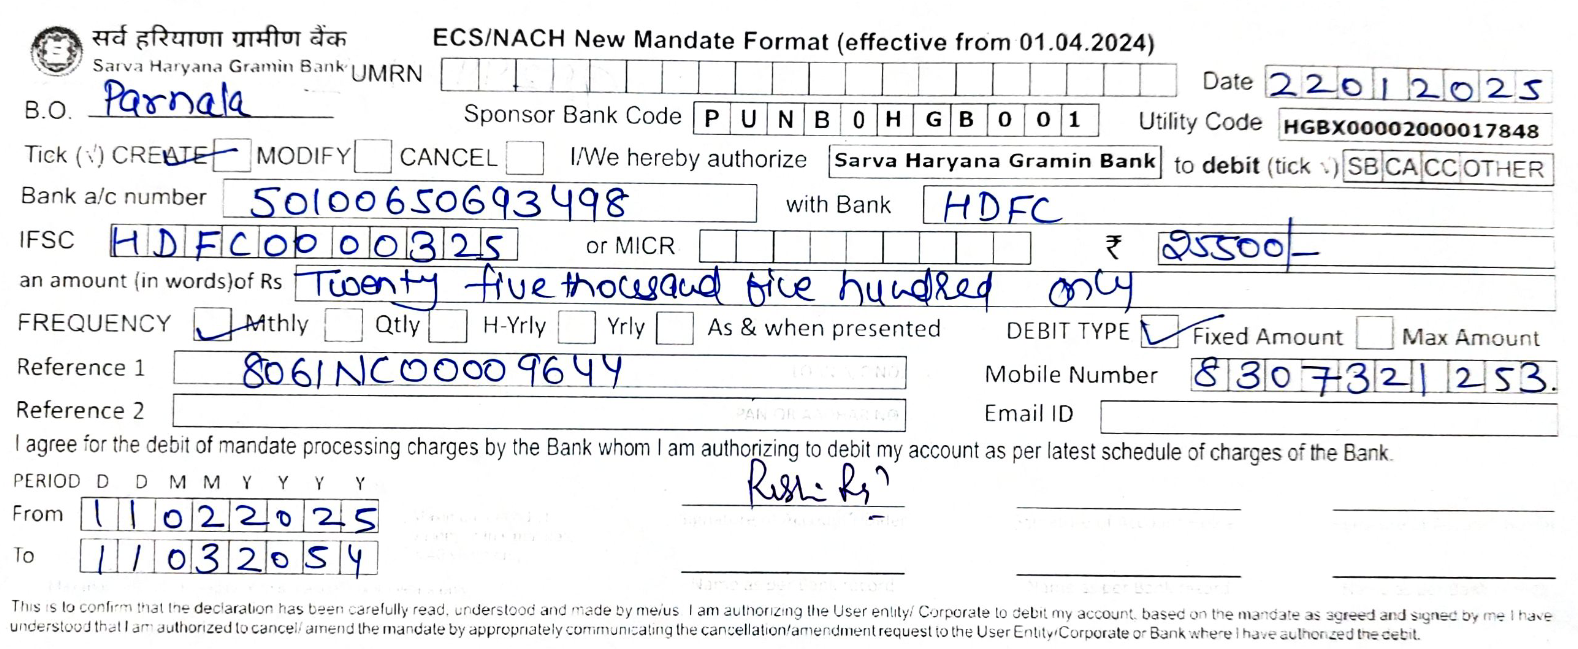 सर्व हरियाणा ग्रामीण बैंक ECS/NACH New Mandate Format (effective from 01.04.2024)
Sarva Haryana Gramin Bank UMRN Date 22012025
B.O. Parnala Sponsor Bank Code PUNB0HGB001 Utility Code HGBX00002000017848
Tick (√) CREATE MODIFY CANCEL I/We hereby authorize Sarva Haryana Gramin Bank to debit (tick √) SB CA CC OTHER
Bank a/c number 50100650693498 with Bank HDFC
IFSC HDFC0000325 or MICR ₹ 25500/-
an amount (in words)of Rs Twenty five thousand five hundred only
FREQUENCY Mthly Qtly H-Yrly Yrly As & when presented DEBIT TYPE Fixed Amount Max Amount
Reference 1 8061NC00009644 Mobile Number 8307321253.
Reference 2 Email ID
I agree for the debit of mandate processing charges by the Bank whom I am authorizing to debit my account as per latest schedule of charges of the Bank.
PERIOD D D M M Y Y Y Y
From 11022025
To 11032054
This is to confirm that the declaration has been carefully read, understood and made by me/us. I am authorizing the User entity/ Corporate to debit my account, based on the mandate as agreed and signed by me I have
understood that I am authorized to cancel/ amend the mandate by appropriately communicating the cancellation/amendment request to the User Entity/Corporate or Bank where I have authorized the debit.